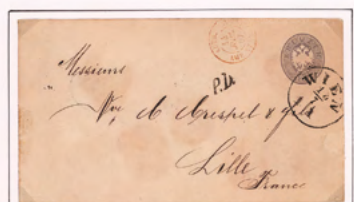 Messieurs
P.D.
WIEN
Vve A Crespel & fils
Lille
France